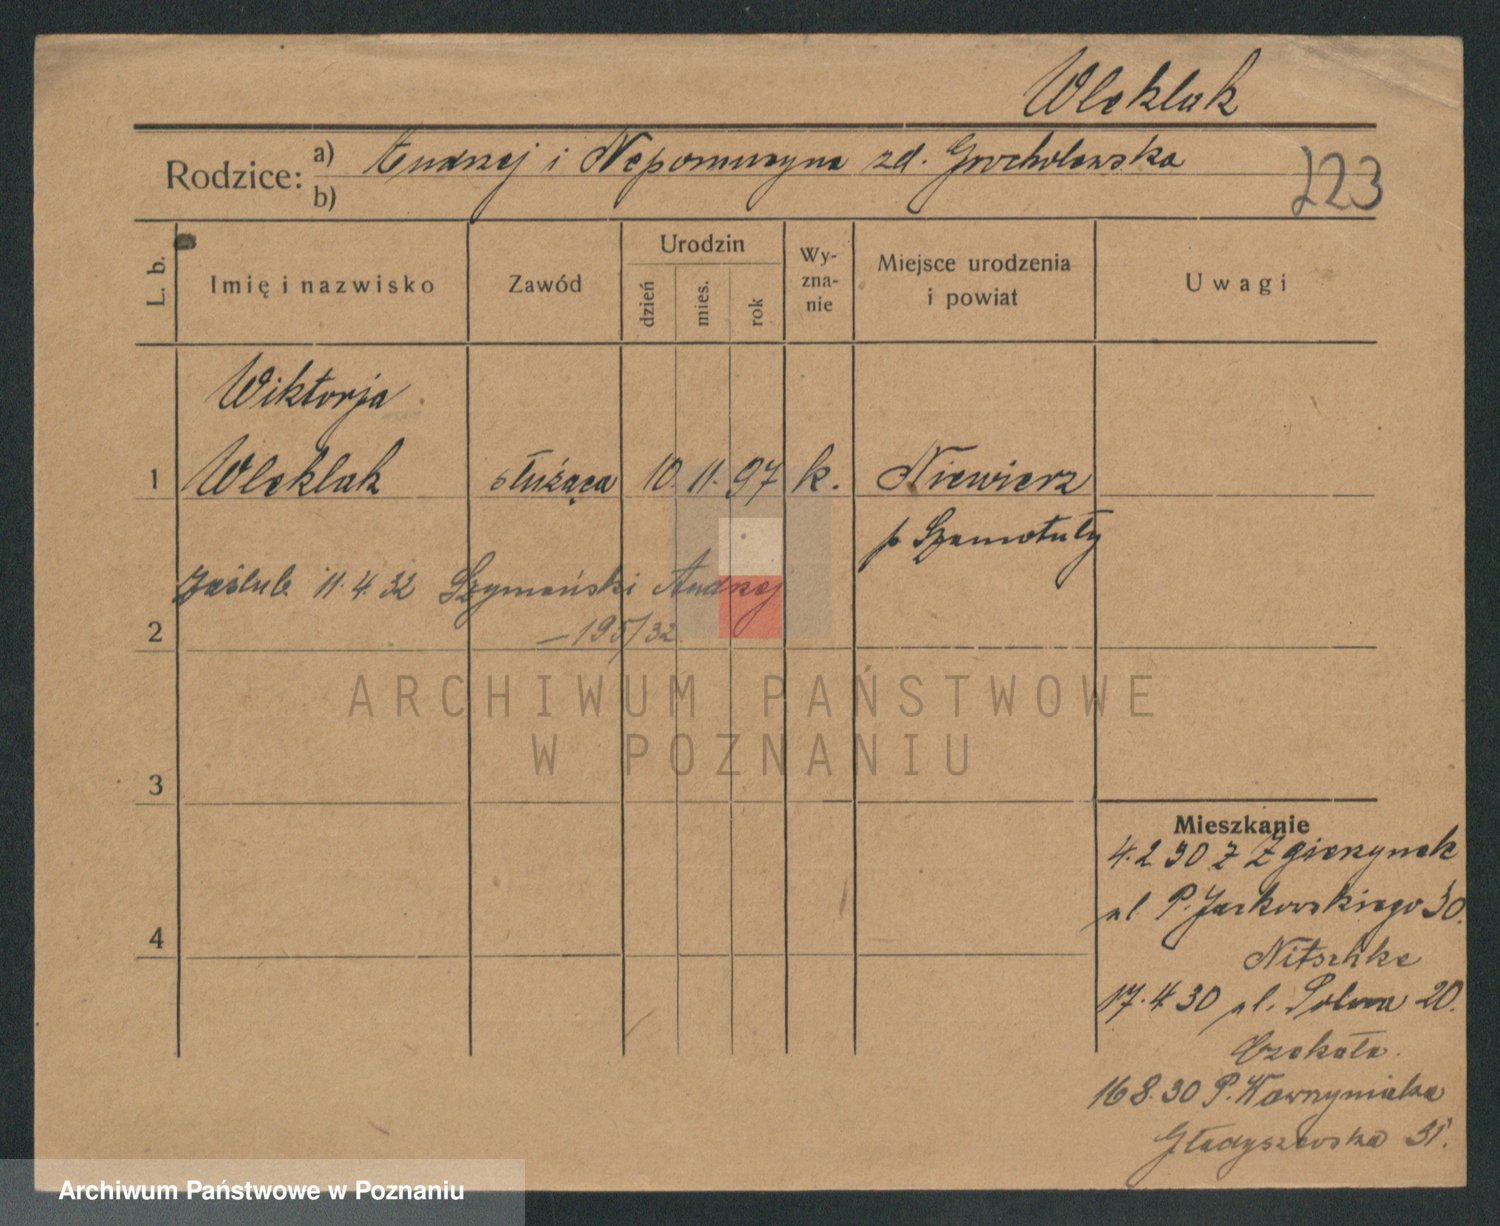 Wleklak
Rodzice: a) Andrzej i Nepomucyna zd. Grocholewska
b)
223
L. b.
Imię i nazwisko
Zawód
Urodzin
dzień
mies.
rok
Wy-
zna-
nie
Miejsce urodzenia
i powiat
Uwagi
Wiktorja
1 Wleklak służąca 10 11. 97 k. Niewierz
p Szamotuły
Zaślub. 11.4.32 Szymański Andrzej
2 — 195/32
ARCHIWUM PAŃSTWOWE
W POZNANIU
3
Mieszkanie
4.2 30 z Zgierzynek
ul P. Jackowskiego 30.
4
Nitschke
17.4.30 ul. Polna 20.
Czekała.
16 8.30 P. Wawrzyniaka
Gładyszewska 31.
Archiwum Państwowe w Poznaniu